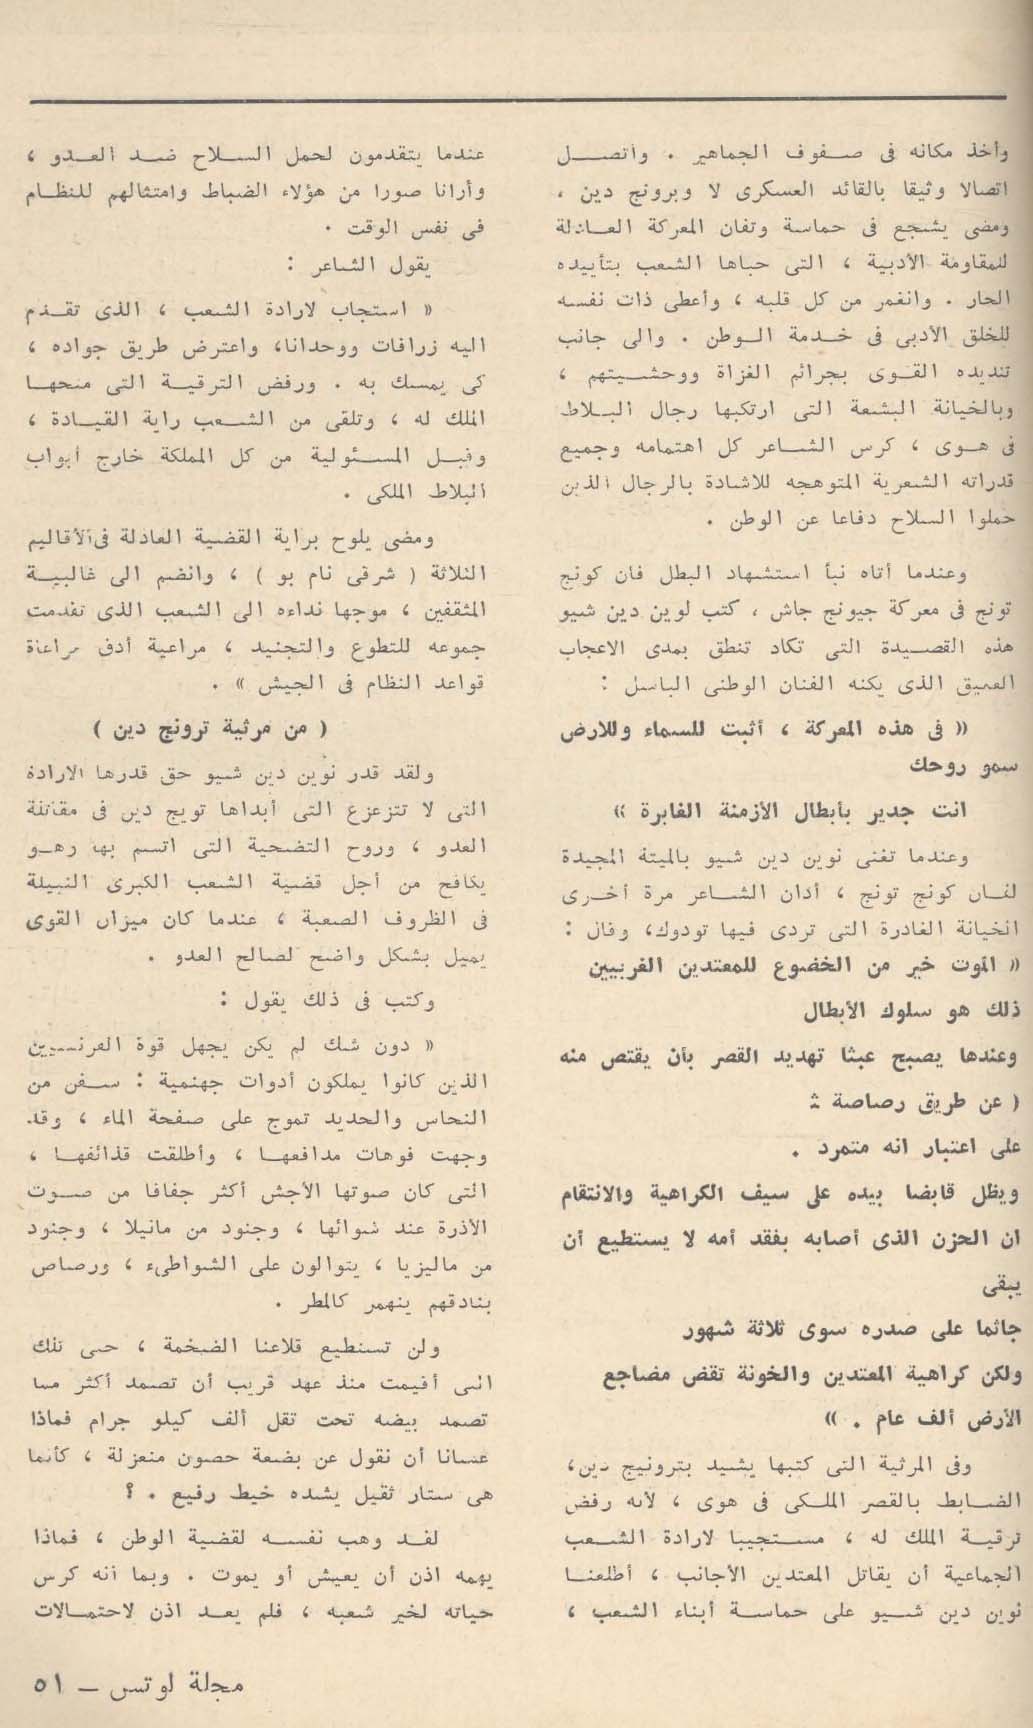 وأخذ مكانه فى صفوف الجماهير . واتصل
اتصالا وثيقا بالقائد العسكرى لا وبرونج دين ،
ومضى يشجع فى حماسة وتفان المعركة العادلة
للمقاومة الأدبية ، التى حباها الشعب بتأييده
الحار . وانغمر من كل قلبه ، وأعطى ذات نفسه
للخلق الأدبى فى خدمة الوطن . والى جانب
تنديده القوى بجرائم الغزاة ووحشيتهم ،
وبالخيانة البشعة التى ارتكبها رجال البلاط
فى هوى ، كرس الشاعر كل اهتمامه وجميع
قدراته الشعرية المتوهجه للاشادة بالرجال الذين
حملوا السلاح دفاعا عن الوطن .
وعندما أتاه نبأ استشهاد البطل فان كونج
تونج فى معركة جيونج جاش ، كتب لوين دين شيو
هذه القصيدة التى تكاد تنطق بمدى الاعجاب
العميق الذى يكنه الفنان الوطنى الباسل :
« فى هذه المعركة ، أثبت للسماء وللارض
سمو روحك
انت جدير بأبطال الأزمنة الغابرة »
وعندما تغنى نوين دين شيو بالميتة المجيدة
لفان كونج تونج ، أدان الشاعر مرة أخرى
الخيانة الغادرة التى تردى فيها تودوك، وقال :
« الموت خير من الخضوع للمعتدين الغربيين
ذلك هو سلوك الأبطال
وعندها يصبح عبثا تهديد القصر بأن يقتص منه
( عن طريق رصاصة ث
على اعتبار انه متمرد .
ويظل قابضا بيده على سيف الكراهية والانتقام
ان الحزن الذى أصابه بفقد أمه لا يستطيع أن
يبقى
جاثما على صدره سوى ثلاثة شهور
ولكن كراهية المعتدين والخونة تقض مضاجع
الأرض ألف عام . »
وفى المرثية التى كتبها يشيد بترونيج دين،
الضابط بالقصر الملكى فى هوى ، لأنه رفض
ترقية الملك له ، مستجيبا لارادة الشعب
الجماعية أن يقاتل المعتدين الأجانب ، أطلعنا
نوين دين شيو على حماسة أبناء الشعب ،
عندما يتقدمون لحمل السلاح ضد العدو ،
وأرانا صورا من هؤلاء الضباط وامتثالهم للنظام
فى نفس الوقت .
يقول الشاعر :
« استجاب لارادة الشعب ، الذى تقدم
اليه زرافات ووحدانا، واعترض طريق جواده ،
كى يمسك به . ورفض الترقية التى منحها
الملك له ، وتلقى من الشعب راية القيادة ،
وقبل المسئولية من كل المملكة خارج أبواب
البلاط الملكى .
ومضى يلوح براية القضية العادلة فى الأقاليم
الثلاثة ( شرقى نام بو ) ، وانضم الى غالبية
المثقفين ، موجها نداءه الى الشعب الذى تقدمت
جموعه للتطوع والتجنيد ، مراعية أدق مراعاة
قواعد النظام فى الجيش » .
( من مرثية ترونج دين )
ولقد قدر نوين دين شيو حق قدرها الارادة
التى لا تتزعزع التى أبداها تويج دين فى مقاتلة
العدو ، وروح التضحية التى اتسم بها وهو
يكافح من أجل قضية الشعب الكبرى النبيلة
فى الظروف الصعبة ، عندما كان ميزان القوى
يميل بشكل واضح لصالح العدو .
وكتب فى ذلك يقول :
« دون شك لم يكن يجهل قوة الفرنسيين
الذين كانوا يملكون أدوات جهنمية : سفن من
النحاس والحديد تموج على صفحة الماء ، وقد
وجهت فوهات مدافعها ، وأطلقت قذائفها ،
التى كان صوتها الأجش أكثر جفافا من صوت
الأذرة عند شوائها ، وجنود من مانيلا ، وجنود
من ماليزيا ، يتوالون على الشواطىء ، ورصاص
بنادقهم ينهمر كالمطر .
ولن تستطيع قلاعنا الضخمة ، حتى تلك
التى أقيمت منذ عهد قريب أن تصمد أكثر مما
تصمد بيضه تحت ثقل ألف كيلو جرام فماذا
عسانا أن نقول عن بضعة حصون منعزلة ، كأنما
هى ستار ثقيل يشده خيط رفيع . ؟
لقد وهب نفسه لقضية الوطن ، فماذا
يهمه اذن أن يعيش أو يموت . وبما أنه كرس
حياته لخير شعبه ، فلم يعد اذن لاحتمالات
مجلة لوتس – ٥١